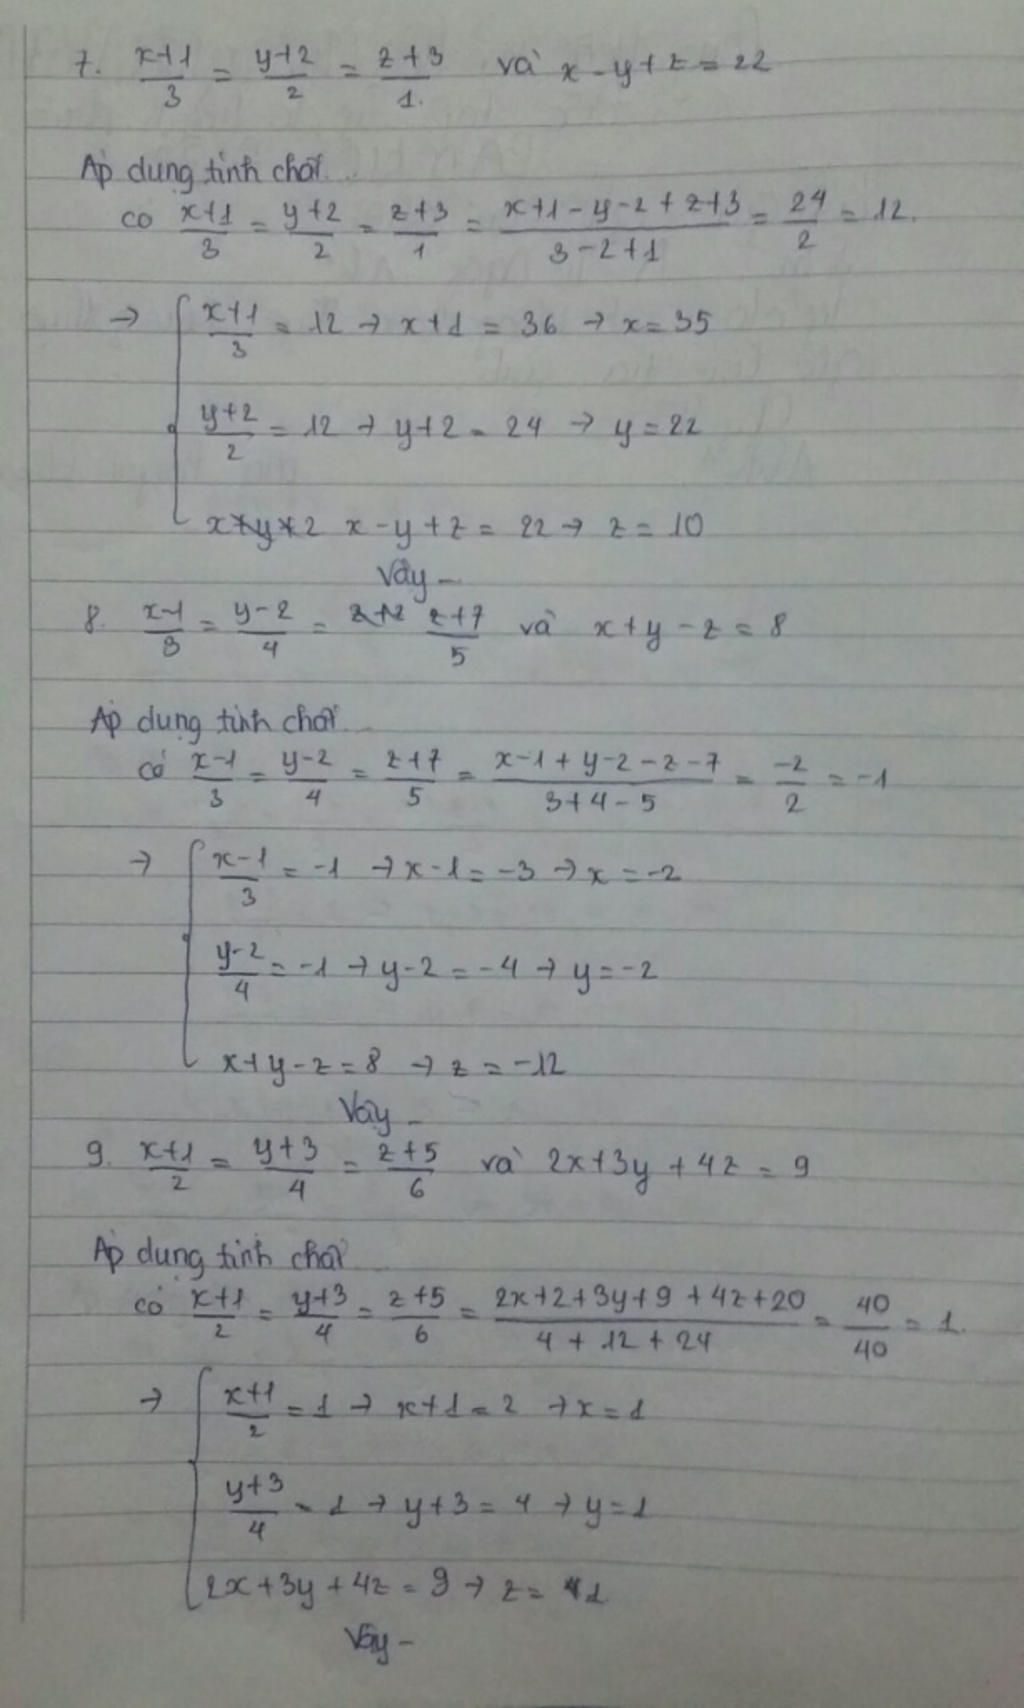 7. (x+1)/3 = (y+2)/2 = (z+3)/1. và x - y + z = 22
Áp dụng tính chất...
có (x+1)/3 = (y+2)/2 = (z+3)/1 = (x+1-y-2+z+3)/(3-2+1) = 24/2 = 12.
→ { (x+1)/3 = 12 → x+1 = 36 → x = 35
(y+2)/2 = 12 → y+2 = 24 → y = 22
x - y + z = 22 → z = 10
Vậy -
8. (x-1)/3 = (y-2)/4 = (z+7)/5 và x + y - z = 8
Áp dụng tính chất...
có (x-1)/3 = (y-2)/4 = (z+7)/5 = (x-1+y-2-z-7)/(3+4-5) = -2/2 = -1
→ { (x-1)/3 = -1 → x-1 = -3 → x = -2
(y-2)/4 = -1 → y-2 = -4 → y = -2
x+y-z = 8 → z = -12
Vậy -
9. (x+1)/2 = (y+3)/4 = (z+5)/6 và 2x+3y+4z = 9
Áp dụng tính chất
có (x+1)/2 = (y+3)/4 = (z+5)/6 = (2x+2+3y+9+4z+20)/(4+12+24) = 40/40 = 1.
→ { (x+1)/2 = 1 → x+1 = 2 → x = 1
(y+3)/4 = 1 → y+3 = 4 → y = 1
2x+3y+4z = 9 → z = 1
Vậy -